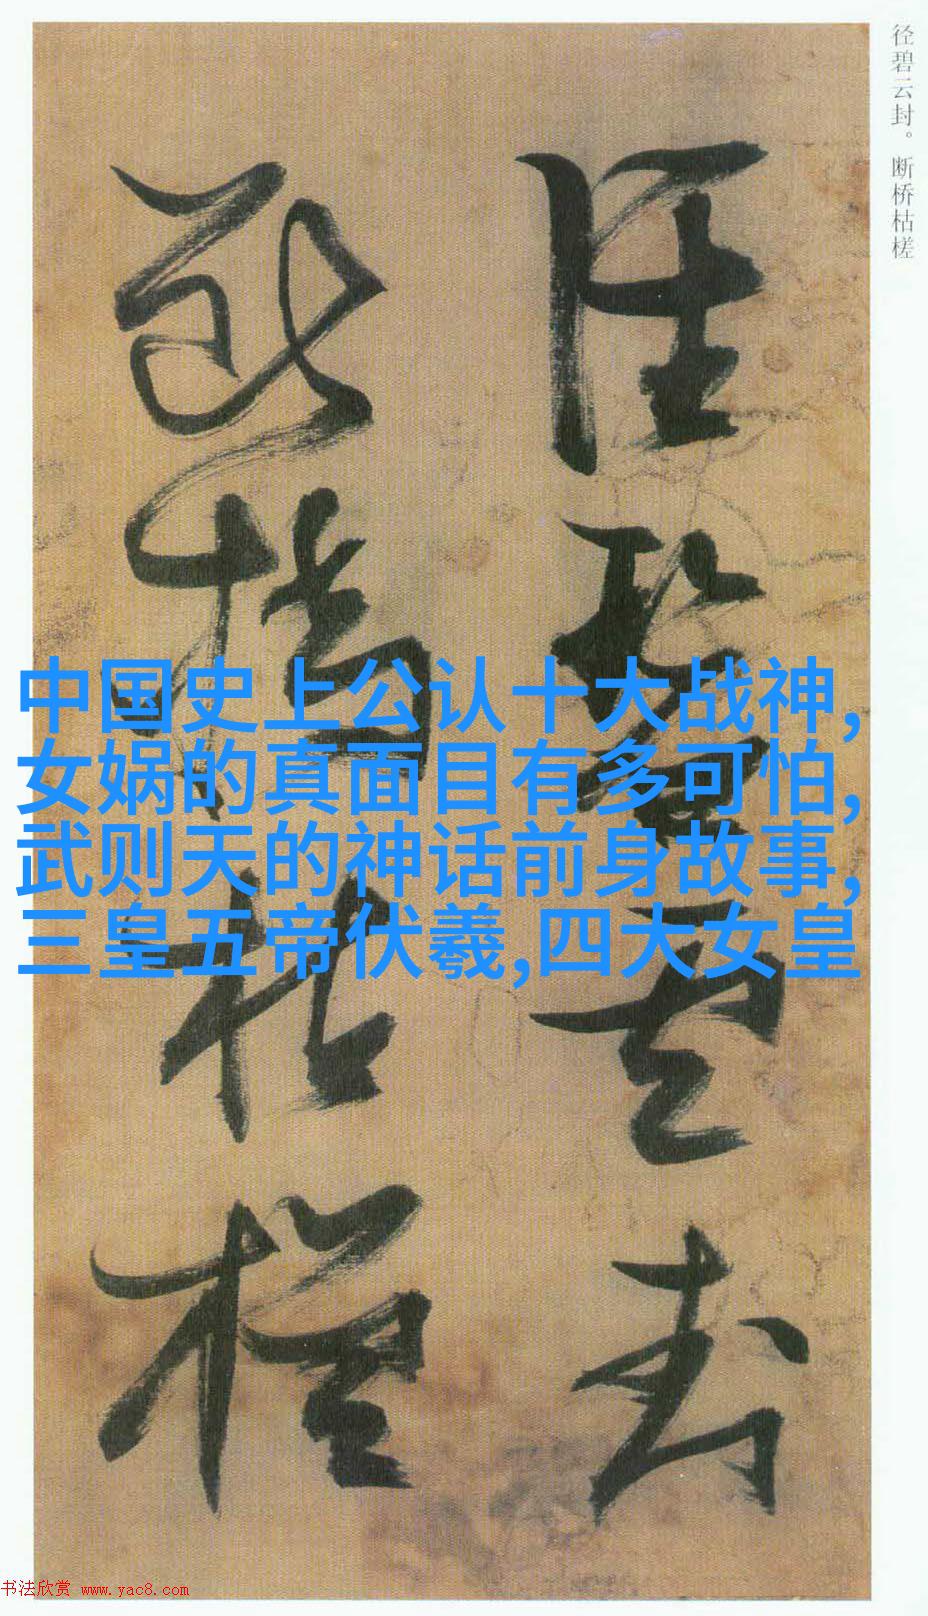 径碧云封。断桥枯槎
径碧云封
断桥枯槎
中国史上公认十大战神,
女娲的真面目有多可怕,
武则天的神话前身故事,
三皇五帝伏羲,四大女皇
书法欣赏 www.yac8.com